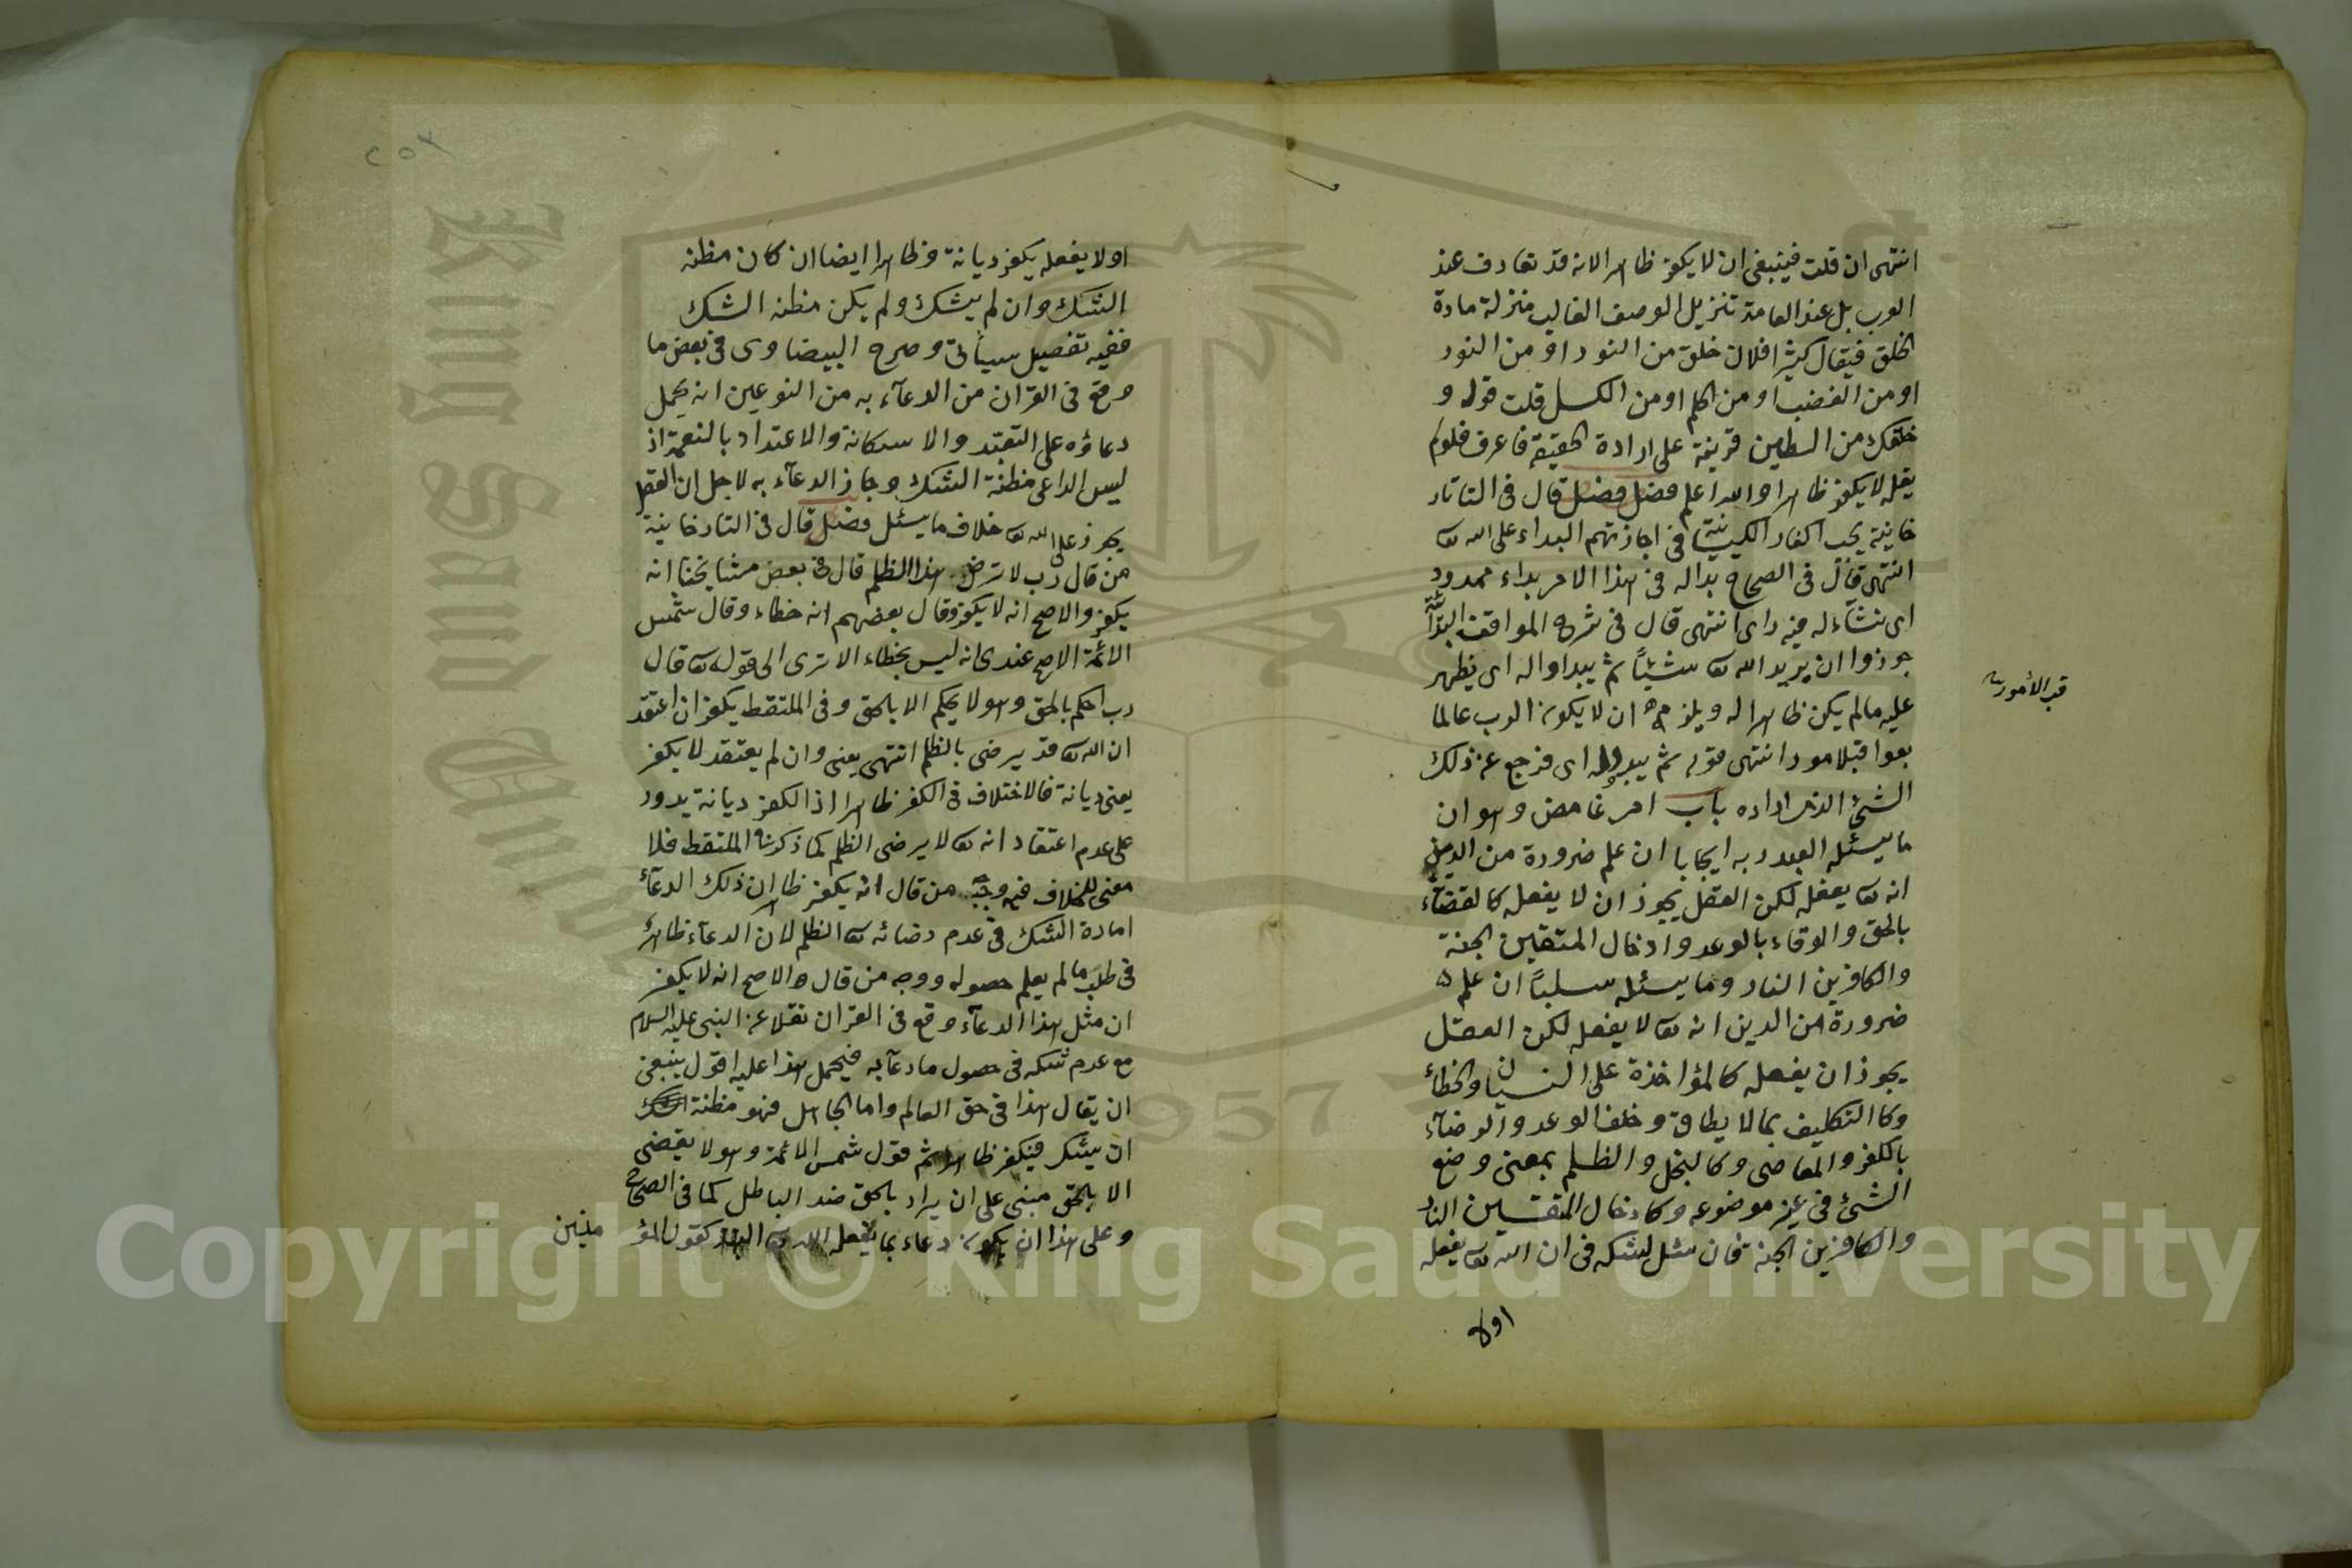 انتهى ان قلت فينبغى ان لا يكفر ظاهرا لانه قد تعارف عند
العرب بل عند العامة تنزيل الوصف الغالب منزلة مادة
الخلق فيقال كثيرا فلان خلق من النور او من النور
او من الغضب او من الحلم او من الكسل قلت قوله و
خلقك من الطين قرينة على ارادة الحقيقة فاعرف فلو لم
يقله لا يكفر ظاهرا والله اعلم فصل فصل قال فى التاتار
خانية يجب اكفار الكيسانية فى اجازتهم البداء على الله تع
انتهى قال فى الصحاح بداله فى هذا الامر بداء ممدود
اى نشأ له فيه راى انتهى قال فى شرح المواقف البدائية
جوزوا ان يريد الله تع شيئاً ثم يبدا واله اى يظهر
عليه مالم يكن ظاهرا له ويلزمه ان لا يكون الرب عالما
بعواقبلامور انتهى قوله ثم يبدوله اى فرجع عن ذلك
قب الأمور
الشئ الذى اراده باب امر غامض وهو ان
ما يسئله العبد ربه ايجابا ان علم ضرورة من الدين
انه تع يفعله لكن العقل يجوز ان لا يفعله كالقضاء
بالحق والوفاء بالوعد وادخال المتقين الجنة
والكافرين النار وما يسئله سلباً ان علم
ضرورة من الدين انه تع لا يفعله لكن العقل
يجوز ان يفعله كالمؤاخذة على النسيان والخطاء
وكا التكليف بما لا يطاق وخلف الوعد والرضاء
بالكفر والمعاصى وكالبخل والظلم بمعنى وضع
الشئ فى غير موضوعه وكادخال المتقين النار
والكافرين الجنة فان سئل لشكه فى ان الله تع يفعله
اولا
اولا يفعله يكفر ديانة وظاهرا ايضا ان كان مظنه
الشك وان لم يشك ولم يكن مظنه الشك
ففيه تفصيل سيأتى وصرح البيضاوى فى بعض ما
وقع فى القران من الدعاء به من النوعين انه يحمل
دعاؤه على التعبد والاسكانة والاعتداد بالنعمة اذ
ليس الداعى مظنة الشك وجاز الدعاء به لاجل ان العقل
يجوز على الله تع خلاف ما يسئل فصل قال فى التتارخانية
من قال رب لا ترض هذا الظلم قال فى بعض مشايخنا انه
يكفر والاصح انه لا يكفر وقال بعضهم انه خطاء وقال شمس
الائمة الاصح عندى انه ليس بخطاء الا ترى الى قوله تع قال
رب احكم بالحق وهو لا يحكم الا بالحق وفى الملتقط يكفر ان اعتقد
ان الله تع قد يرضى بالظلم انتهى يعنى وان لم يعتقد لا يكفر
يعنى ديانة فالاختلاف فى الكفر ظاهرا اذ الكفر ديانة يدور
على عدم اعتقاد انه تع لا يرضى الظلم كما ذكر فى الملتقط فلا
معنى للخلاف فيه وجه من قال انه يكفر ظاهرا ان ذلك الدعاء
امارة الشك فى عدم رضائه تع الظلم لان الدعاء ظاهر
فى طلب ما لم يعلم حصوله ووجه من قال والاصح انه لا يكفر
ان مثل هذا الدعاء وقع فى القران نقلا عن النبى عليه السلام
مع عدم شكه فى حصول ما دعآ به فيحمل هذا عليه اقول ينبغى
ان يقال هذا فى حق العالم واما الجاهل فهو مظنة
ان يشك فيكفر ظاهرا ثم قول شمس الائمة وهو لا يقضى
الا بالحق مبنى على ان يراد بالحق ضد الباطل كما فى الصحاح
وعلى هذا ان يكون دعاء بما يفعله الله تع البتة كقول المؤ منين
Copyright © King Saud University
King Saud
1957